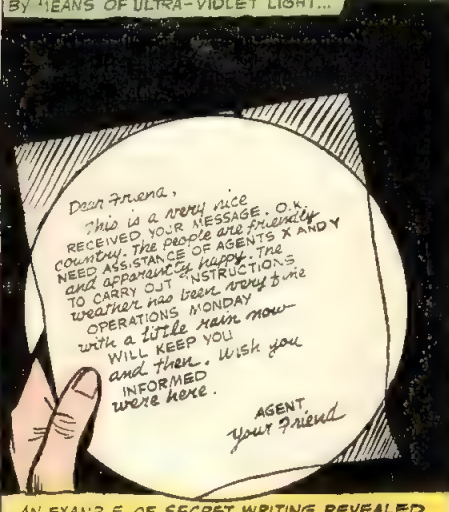 BY MEANS OF ULTRA-VIOLET LIGHT...
Dear Friend,
This is a very nice
RECEIVED YOUR MESSAGE. O.K.
country. The people are friendly
NEED ASSISTANCE OF AGENTS X AND Y
and apparantly happy. The
TO CARRY OUT INSTRUCTIONS
weather has been very fine
OPERATIONS MONDAY
with a little rain now
WILL KEEP YOU
and then. Wish you
INFORMED
were here.
AGENT
Your Friend
AN EXAMPLE OF SECRET WRITING REVEALED